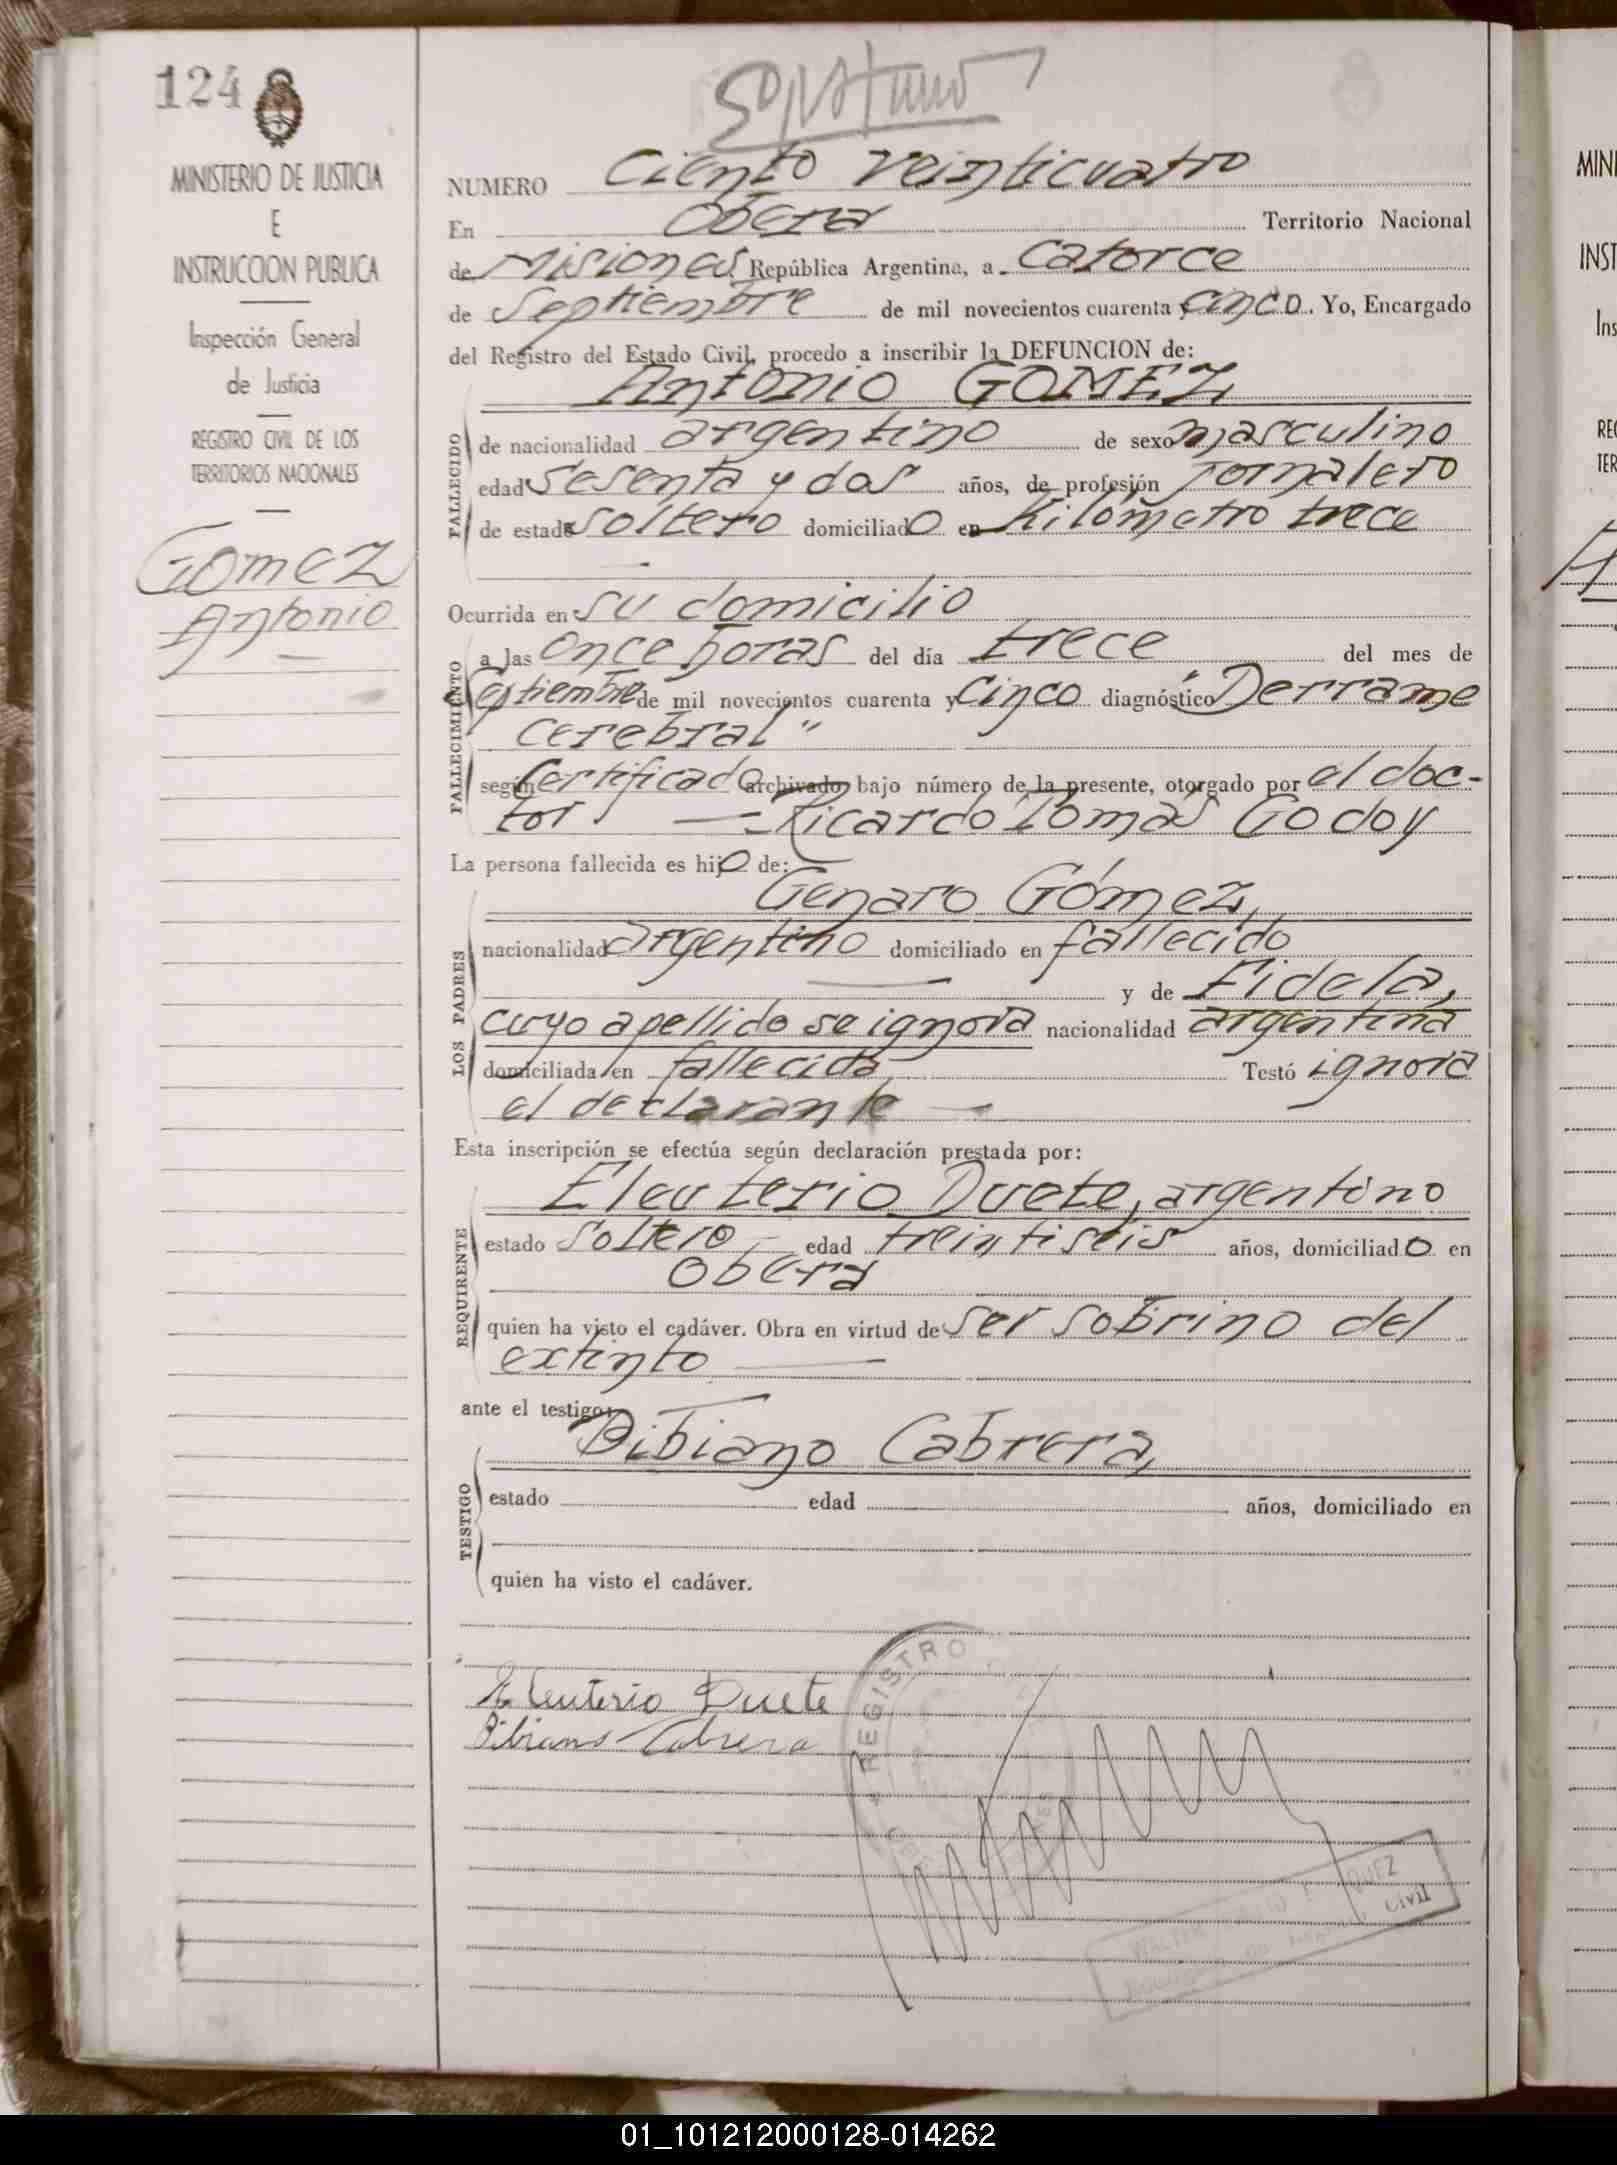 124
MINISTERIO DE JUSTICIA
E
INSTRUCCION PUBLICA
Inspección General
de Justicia
REGISTRO CIVIL DE LOS
TERRITORIOS NACIONALES
Gomez
Antonio
NUMERO Ciento veinticuatro
En Obera Territorio Nacional
de Misiones República Argentina, a catorce
de Septiembre de mil novecientos cuarenta y cinco. Yo, Encargado
del Registro del Estado Civil, procedo a inscribir la DEFUNCION de:
Antonio GOMEZ
FALLECIDO
de nacionalidad argentino de sexo masculino
edad sesenta y dos años, de profesión jornalero
de estado soltero domiciliado en Kilómetro trece
Ocurrida en su domicilio
FALLECIMIENTO
a las once horas del día trece del mes de
Septiembre de mil novecientos cuarenta y cinco diagnóstico "Derrame
cerebral"
según Certificado archivado bajo número de la presente, otorgado por el doc-
tor Ricardo Tomás Godoy
La persona fallecida es hijo de:
LOS PADRES
Genaro Gómez,
nacionalidad argentino domiciliado en fallecido
y de Fidela,
cuyo apellido se ignora nacionalidad argentina
domiciliada en fallecida Testó ignora
el declarante
Esta inscripción se efectúa según declaración prestada por:
REQUIRENTE
Eleuterio Duete, argentino
estado soltero edad treintiseis años, domiciliado en
Obera
quien ha visto el cadáver. Obra en virtud de ser sobrino del
extinto
ante el testigo:
TESTIGO
Bibiano Cabrera,
estado edad años, domiciliado en
quien ha visto el cadáver.
Eleuterio Duete
Bibiano Cabrera
REGISTRO
WALTER
Civil
MINI
INST
Ins
REG
TER
01_101212000128-014262